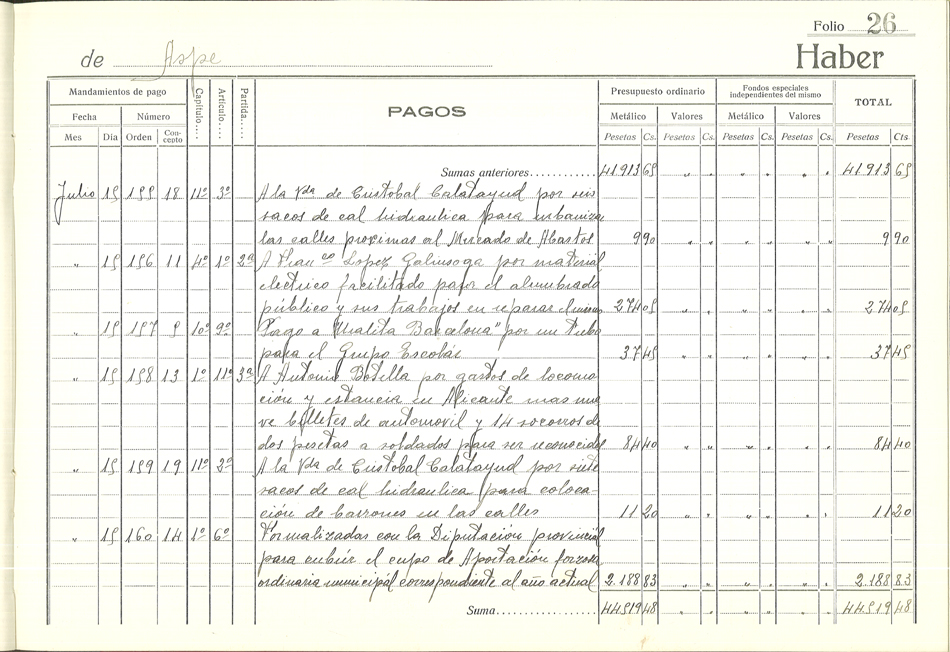 Folio 26
de Aspe Haber
Mandamientos de pago Capítulo.... Artículo.... Partida.... PAGOS Presupuesto ordinario Fondos especiales independientes del mismo TOTAL
Fecha Número Metálico Valores Metálico Valores
Mes Día Orden Concepto Pesetas Cs. Pesetas Cs. Pesetas Cs. Pesetas Cs. Pesetas Cts
Sumas anteriores 41913 65 " " " " " " 41.913 65
Julio 15 155 18 11º 3º A la Vda de Cristobal Calatayud por seis
sacos de cal hidraulica para urbanizar
las calles proximas al Mercado de Abastos 9 90 " " " " " " 9 90
" 15 156 11 4º 1º 2ª A Franco Lopez Galiusoga por material
electrico facilitado para el alumbrado
público y sus trabajos en reparar el mismo 274 05 " " " " " " 274 05
" 15 157 9 10º 9º Pago a "Uralita Barcelona" por un tubo
para el Grupo Escolar 37 45 " " " " " " 37 45
" 15 158 13 1º 11º 3ª A Antonio Botella por gastos de locomo-
ción y estancia en Alicante mas nue
ve billetes de automovil y 14 socorros de
dos pesetas a soldados para ser reconocidos 84 40 " " " " " " 84 40
" 15 159 19 11º 2º A la Vda de Cristobal Calatayud por siete
sacos de cal hidraulica para coloca-
ción de barrones en las calles 11 20 " " " " " " 11 20
" 15 160 14 1º 6º Formalizadas con la Diputación provincial
para cubrir el cupo de Aportación forzosa
ordinaria municipal correspondiente al año actual 2.188 83 " " " " " " 2.188 83
Suma 44519 48 " " " " " " 44519 48